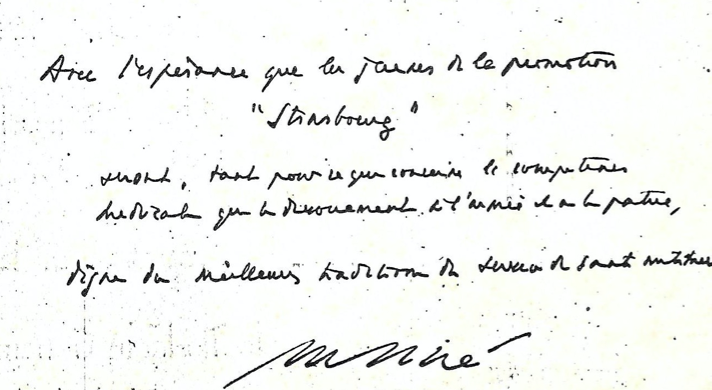 Avec l'espérance que les jeunes de la promotion
"Strasbourg"
seront, tant pour ce qui concerne la compétence
médicale que le dévouement à l'armée et à la patrie,
digne des meilleures traditions du service de santé militaire